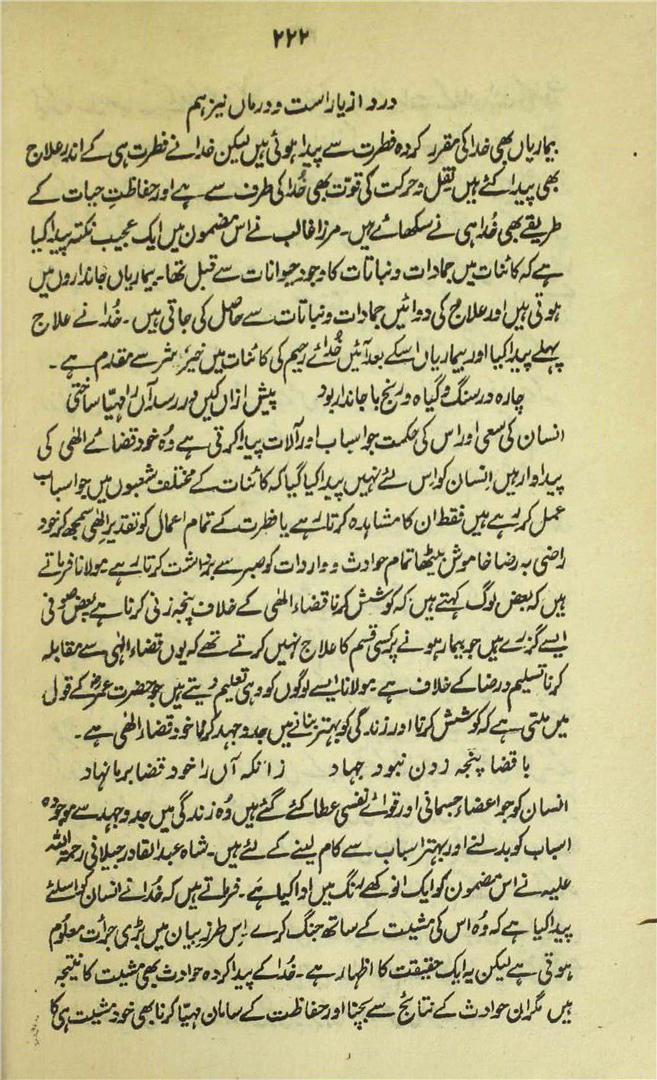 ۲۲۲
درد از یار است و درماں نیز ہم
بیماریاں بھی خدا کی مقرر کردہ فطرت سے پیدا ہوئی ہیں لیکن خدا نے فطرت ہی کے اندر علاج
بھی پیدا کئے ہیں نقل و حرکت کی قوت بھی خُدا کی طرف سے ہے اور حفاظتِ حیات کے
طریقے بھی خُدا ہی نے سکھائے ہیں۔ مرزا غالب نے اس مضمون میں ایک عجیب نکتہ پیدا کیا
ہے کہ کائنات میں جمادات و نباتات کا وجود حیوانات سے قبل تھا۔ بیماریاں جانداروں میں
ہوتی ہیں اور علاج کی دوائیں جمادات و نباتات سے حاصل کی جاتی ہیں۔ خُدا نے علاج
پہلے پیدا کیا اور بیماریاں اسکے بعد آئیں خُدائے رحیم کی کائنات میں خیر، شر سے مقدم ہے۔
چارہ در سنگ و گیاہ و رنج با جاندار بود پیش ازاں کیں در رسد آں را مہیا ساختی
انسان کی سعی اور اس کی حکمت جو اسباب اور آلات پیدا کرتی ہے وُہ خود قضائے الٰھی کی
پیداوار ہیں اِنسان کو اِس لئے نہیں پیدا کیا گیا کہ کائنات کے مختلف شعبوں میں جو اسباب
عمل کر رہے ہیں فقط ان کا مشاہدہ کرتا رہے یا فطرت کے تمام اعمال کو تقدیرِ الٰھی سمجھ کر خود
راضی بہ رضا خاموش بیٹھا تمام حوادث و واردات کو صبر سے برداشت کرتا رہے۔ مولانا فرماتے
ہیں کہ بعض لوگ کہتے ہیں کہ کوشش کرنا قضاء الٰھی کے خلاف پنجہ زنی کرنا ہے بعض صوفی
ایسے گزرے ہیں جو بیمار ہونے پر کسی قسم کا علاج نہیں کرتے تھے کہ یوں قضاء الٰہی سے مقابلہ
کرنا تسلیم و رضا کے خلاف ہے۔ مولانا ایسے لوگوں کو وہی تعلیم دیتے ہیں جو حضرت عمرؓ کے قول
میں ملتی ہے کہ کوشش کرنا اور زندگی کو بہتر بنانے میں جدوجہد کرنا خود قضاء الٰھی ہے۔
با قضا پنجہ زدن نبود جہاد زانکہ آں را خود قضا بر ما نہاد
انسان کو جو اعضاء جسمانی اور قوائے نفسی عطا کئے گئے ہیں وُہ زندگی میں جدوجہد سے موجودہ
اسباب کو بدلنے اور بہتر اسباب سے کام لینے کے لئے ہیں۔ شاہ عبدالقادر جیلانی رحمۃ اللہ
علیہ نے اس مضمون کو ایک انوکھے رنگ میں ادا کیا ہے۔ فرماتے ہیں کہ خُدا نے انسان کو اسلئے
پیدا کیا ہے کہ وُہ اس کی مشیت کے ساتھ جنگ کرے۔ اِس طرزِ بیان میں بڑی جرأت معلوم
ہوتی ہے لیکن یہ ایک حقیقت کا اظہار ہے۔ خُدا کے پیدا کردہ حوادث بھی مشیت کا نتیجہ
ہیں مگر ان حوادث کے نتائج سے بچنا اور حفاظت کے سامان مہیّا کرنا بھی خود مشیت ہی کا